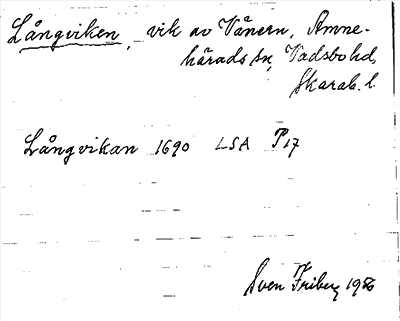 Långviken, vik av Vänern, Amne-
härads sn, Vadsbo hd,
Skarab. l.
Långvikan 1690 LSA P17
Sven Friberg